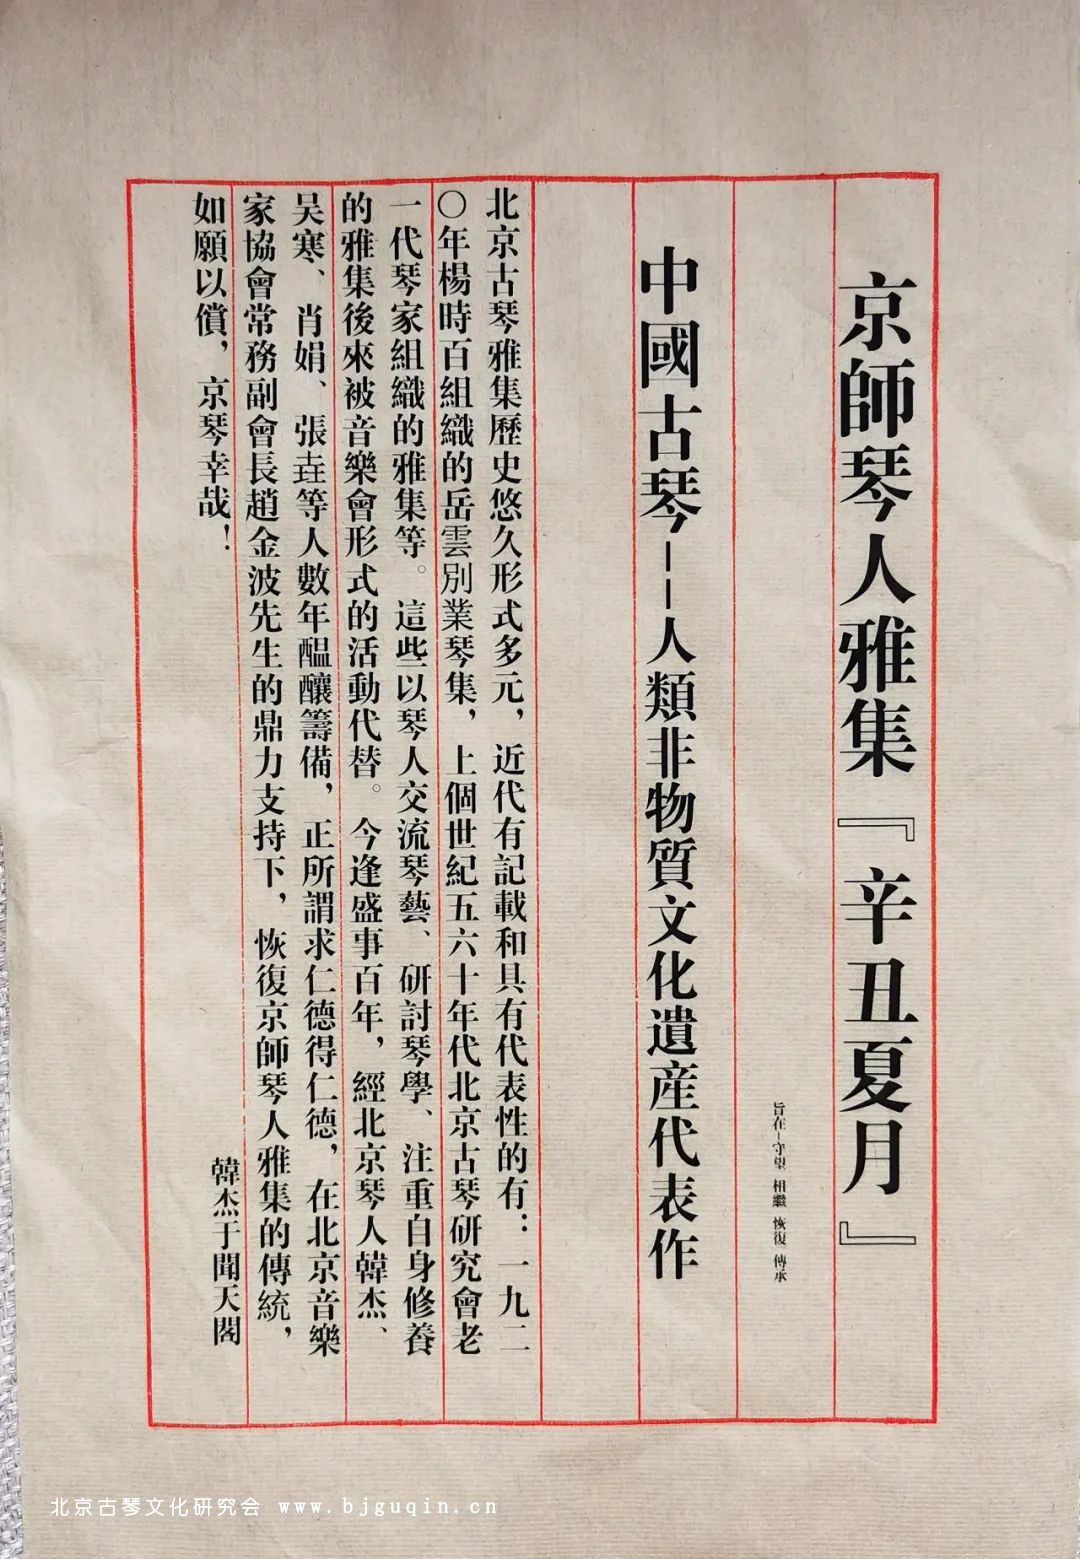 京師琴人雅集『辛丑夏月』
旨在–守望 相繼 恢復 傳承
中國古琴––人類非物質文化遺産代表作
北京古琴雅集歷史悠久形式多元，近代有記載和具有代表性的有：一九二
〇年楊時百組織的岳雲別業琴集，上個世紀五六十年代北京古琴研究會老
一代琴家組織的雅集等。這些以琴人交流琴藝、研討琴學、注重自身修養
的雅集後來被音樂會形式的活動代替。今逢盛事百年，經北京琴人韓杰、
吴寒、肖娟、張垚等人數年醖釀籌備，正所謂求仁德得仁德，在北京音樂
家協會常務副會長趙金波先生的鼎力支持下，恢復京師琴人雅集的傳統，
如願以償，京琴幸哉！
韓杰于聞天閣
北京古琴文化研究会 www.bjguqin.cn